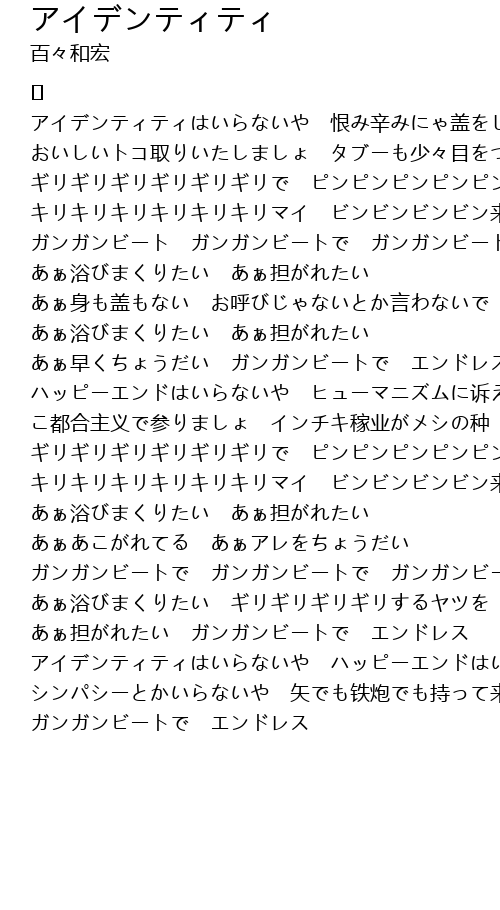 アイデンティティ
百々和宏
アイデンティティはいらないや　恨み辛みにゃ盖をし
おいしいトコ取りいたしましょ　タブーも少々目をつ
ギリギリギリギリギリギリで　ピンピンピンピンピン
キリキリキリキリキリキリマイ　ビンビンビンビン来
ガンガンビート　ガンガンビートで　ガンガンビート
あぁ浴びまくりたい　あぁ担がれたい
あぁ身も盖もない　お呼びじゃないとか言わないで
あぁ浴びまくりたい　あぁ担がれたい
あぁ早くちょうだい　ガンガンビートで　エンドレス
ハッピーエンドはいらないや　ヒューマニズムに诉え
こ都合主义で参りましょ　インチキ稼业がメシの种
ギリギリギリギリギリギリで　ピンピンピンピンピン
キリキリキリキリキリキリマイ　ビンビンビンビン来
あぁ浴びまくりたい　あぁ担がれたい
あぁあこがれてる　あぁアレをちょうだい
ガンガンビートで　ガンガンビートで　ガンガンビー
あぁ浴びまくりたい　ギリギリギリギリするヤツを
あぁ担がれたい　ガンガンビートで　エンドレス
アイデンティティはいらないや　ハッピーエンドはい
シンパシーとかいらないや　矢でも铁炮でも持って来
ガンガンビートで　エンドレス